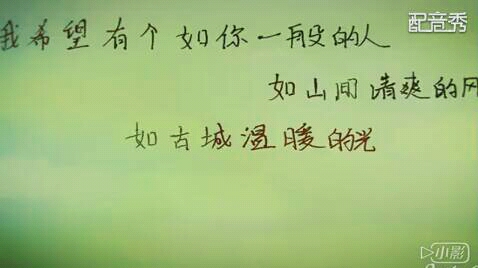 配音秀
我希望有个如你一般的人
如山间清爽的风
如古城温暖的光
小影